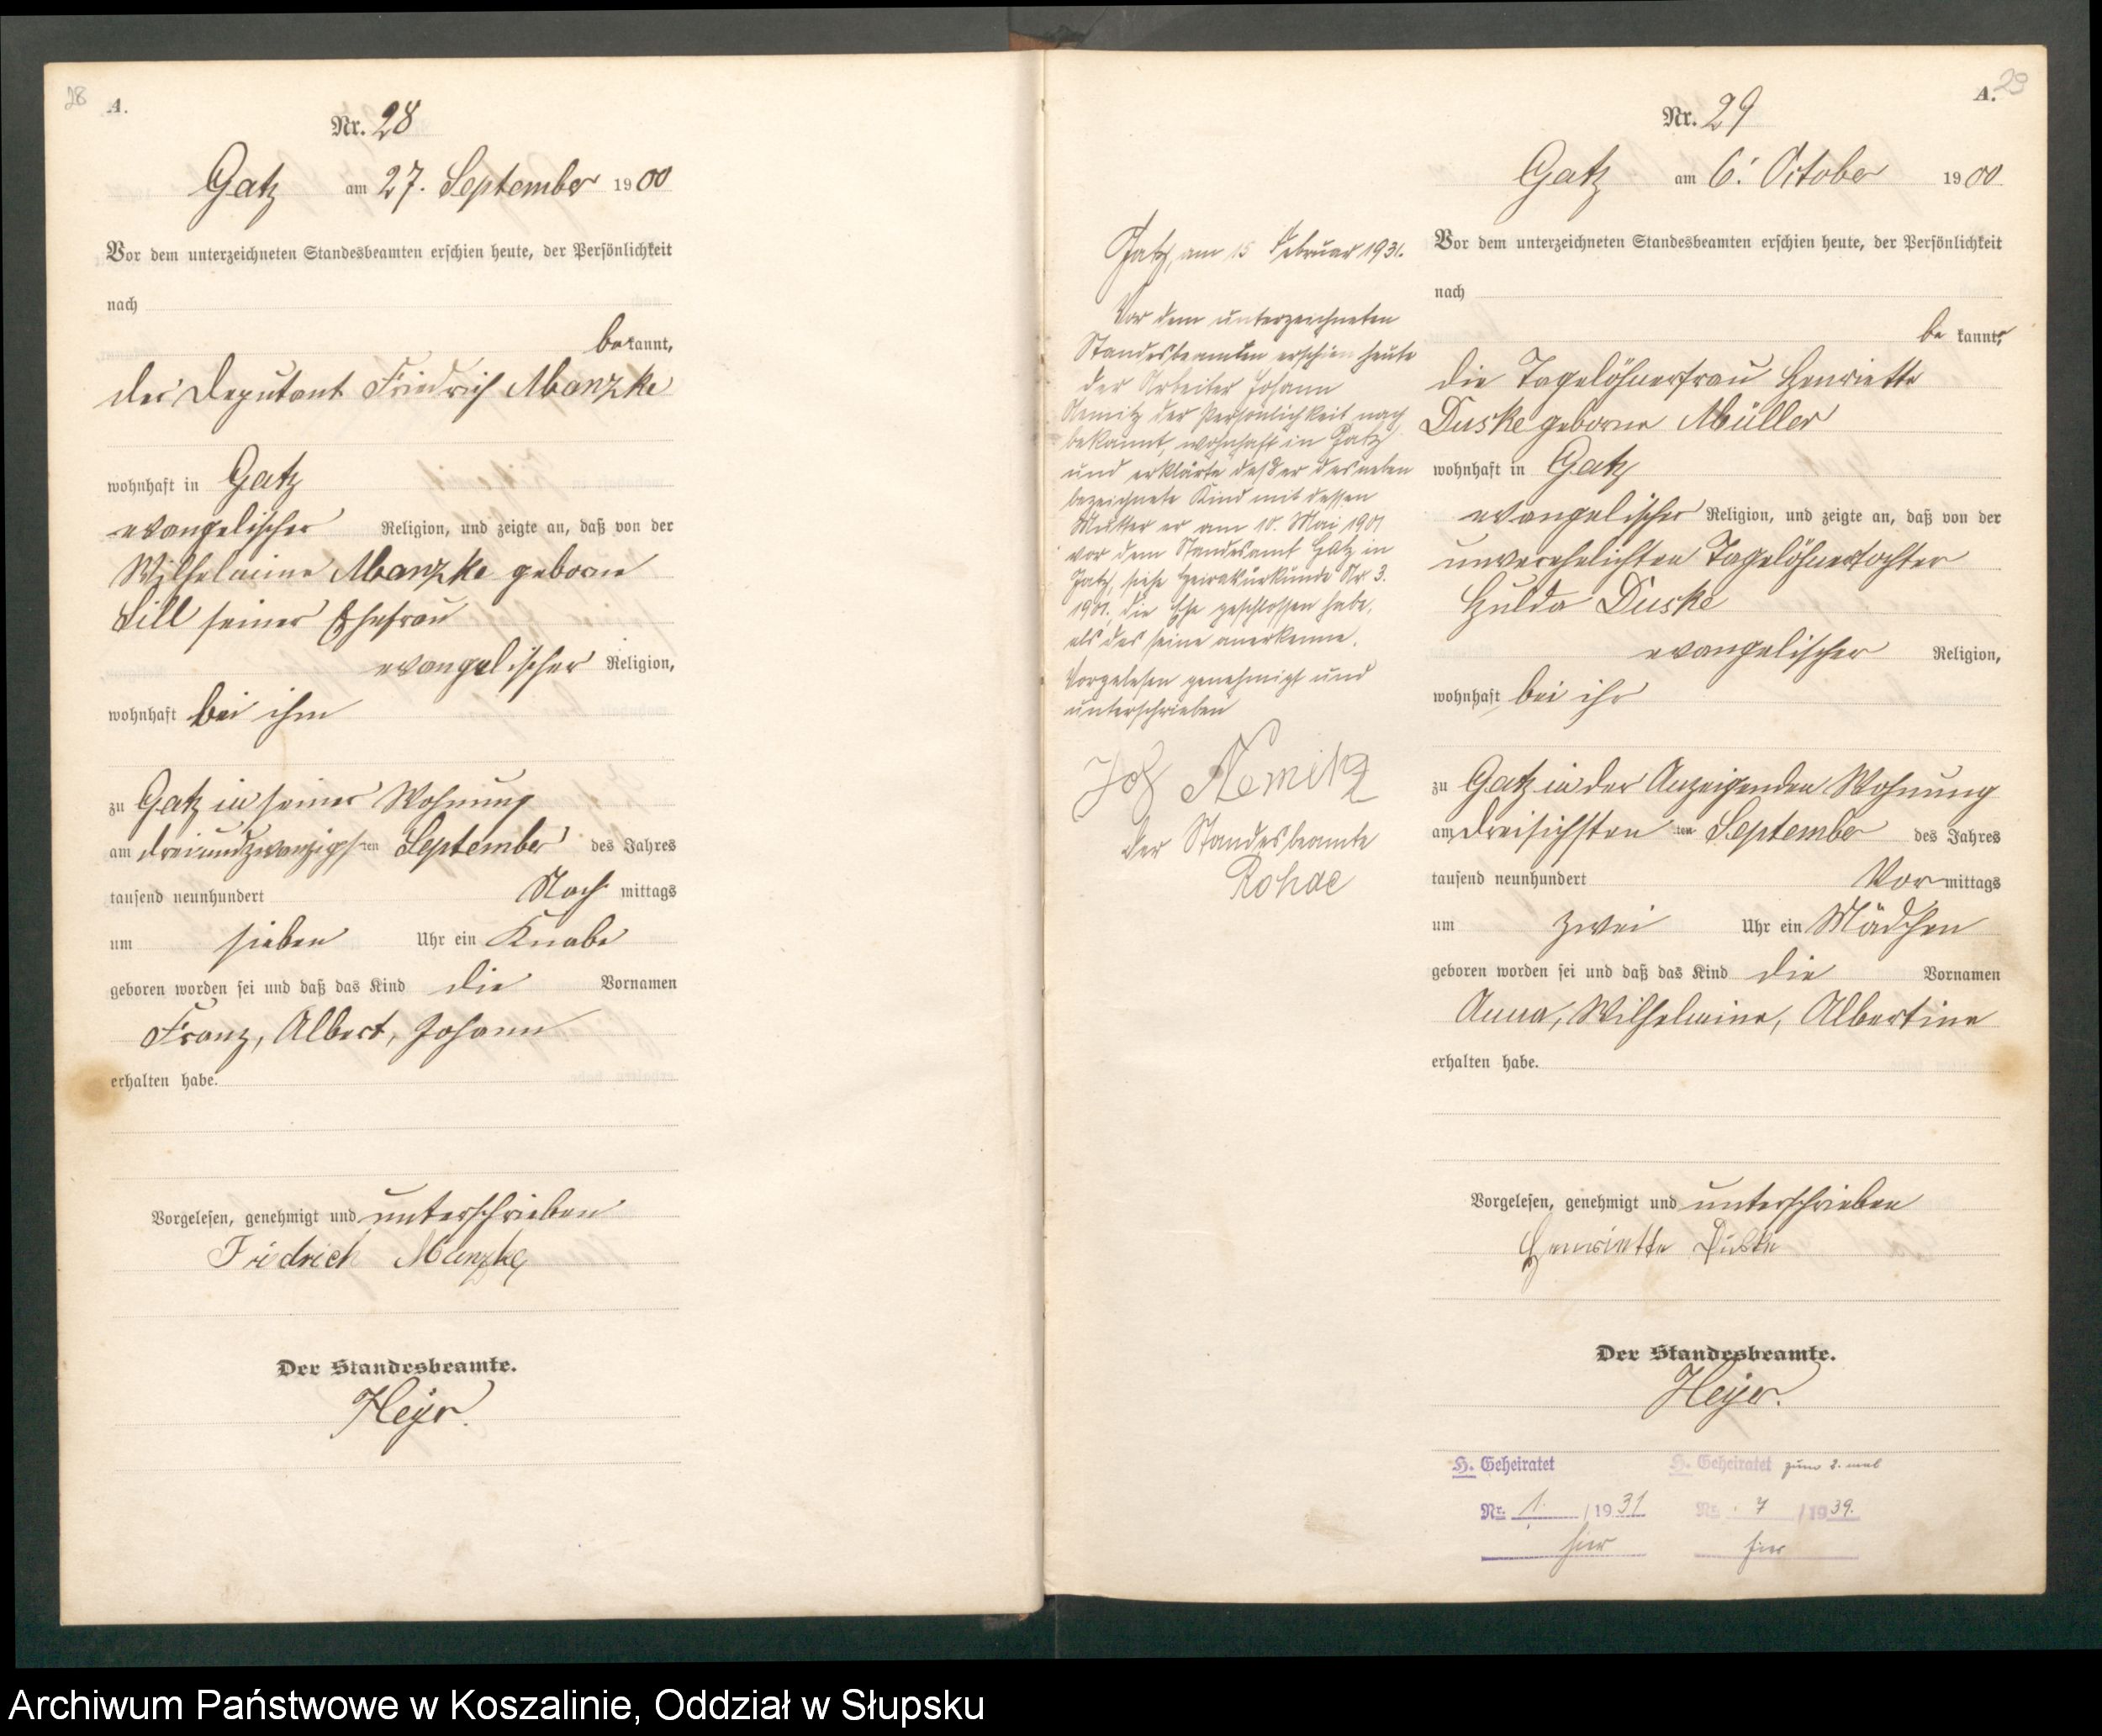 28
A.
Nr. 28
Gatz am 27. September 1900
Vor dem unterzeichneten Standesbeamten erschien heute, der Persönlichkeit
nach
bekannt,
der Deputant Friedrich Manzke
wohnhaft in Gatz
evangelischer Religion, und zeigte an, daß von der
Wilhelmine Manzke geborne
Sill seiner Ehefrau
evangelischer Religion,
wohnhaft bei ihm
zu Gatz in seiner Wohnung
am dreiundzwanzigsten September des Jahres
tausend neunhundert Nach mittags
um sieben Uhr ein Knabe
geboren worden sei und daß das Kind die Vornamen
Franz, Albert, Johann
erhalten habe.
Vorgelesen, genehmigt und unterschrieben
Friedrich Manzke
Der Standesbeamte.
Heyer.
Gatz, am 15 Februar 1931.
Vor dem unterzeichneten
Standesbeamten erschien heute
der Arbeiter Johann
Nemitz der Persönlichkeit nach
bekannt, wohnhaft in Gatz
und erklärte daß er das neben
bezeichnete Kind mit dessen
Mutter er am 10. Mai 1901
vor dem Standesamt Gatz in
Gatz, siehe Heiratsurkunde Nr. 3.
1901, die Ehe geschlossen habe,
als das seine anerkenne.
Vorgelesen genehmigt und
unterschrieben
Joh Nemitz
Der Standesbeamte
Rohde
29
A.
Nr. 29
Gatz am 6. October 1900
Vor dem unterzeichneten Standesbeamten erschien heute, der Persönlichkeit
nach
be kannt,
die Tagelöhnerfrau Henriette
Duske geborne Müller
wohnhaft in Gatz
evangelischer Religion, und zeigte an, daß von der
unverehelichten Tagelöhnertochter
Hulda Duske
evangelischer Religion,
wohnhaft bei ihr
zu Gatz in der Anzeigenden Wohnung
am dreisichsten ten September des Jahres
tausend neunhundert Vormittags
um zwei Uhr ein Mädchen
geboren worden sei und daß das Kind die Vornamen
Anna, Wilhelmine, Albertine
erhalten habe.
Vorgelesen, genehmigt und unterschrieben
Henriette Duske
Der Standesbeamte.
Heyer.
H. Geheiratet H. Geheiratet zum 2. mal
Nr. 1. /1931 Nr. 7 /1939.
hier hier
Archiwum Państwowe w Koszalinie, Oddział w Słupsku